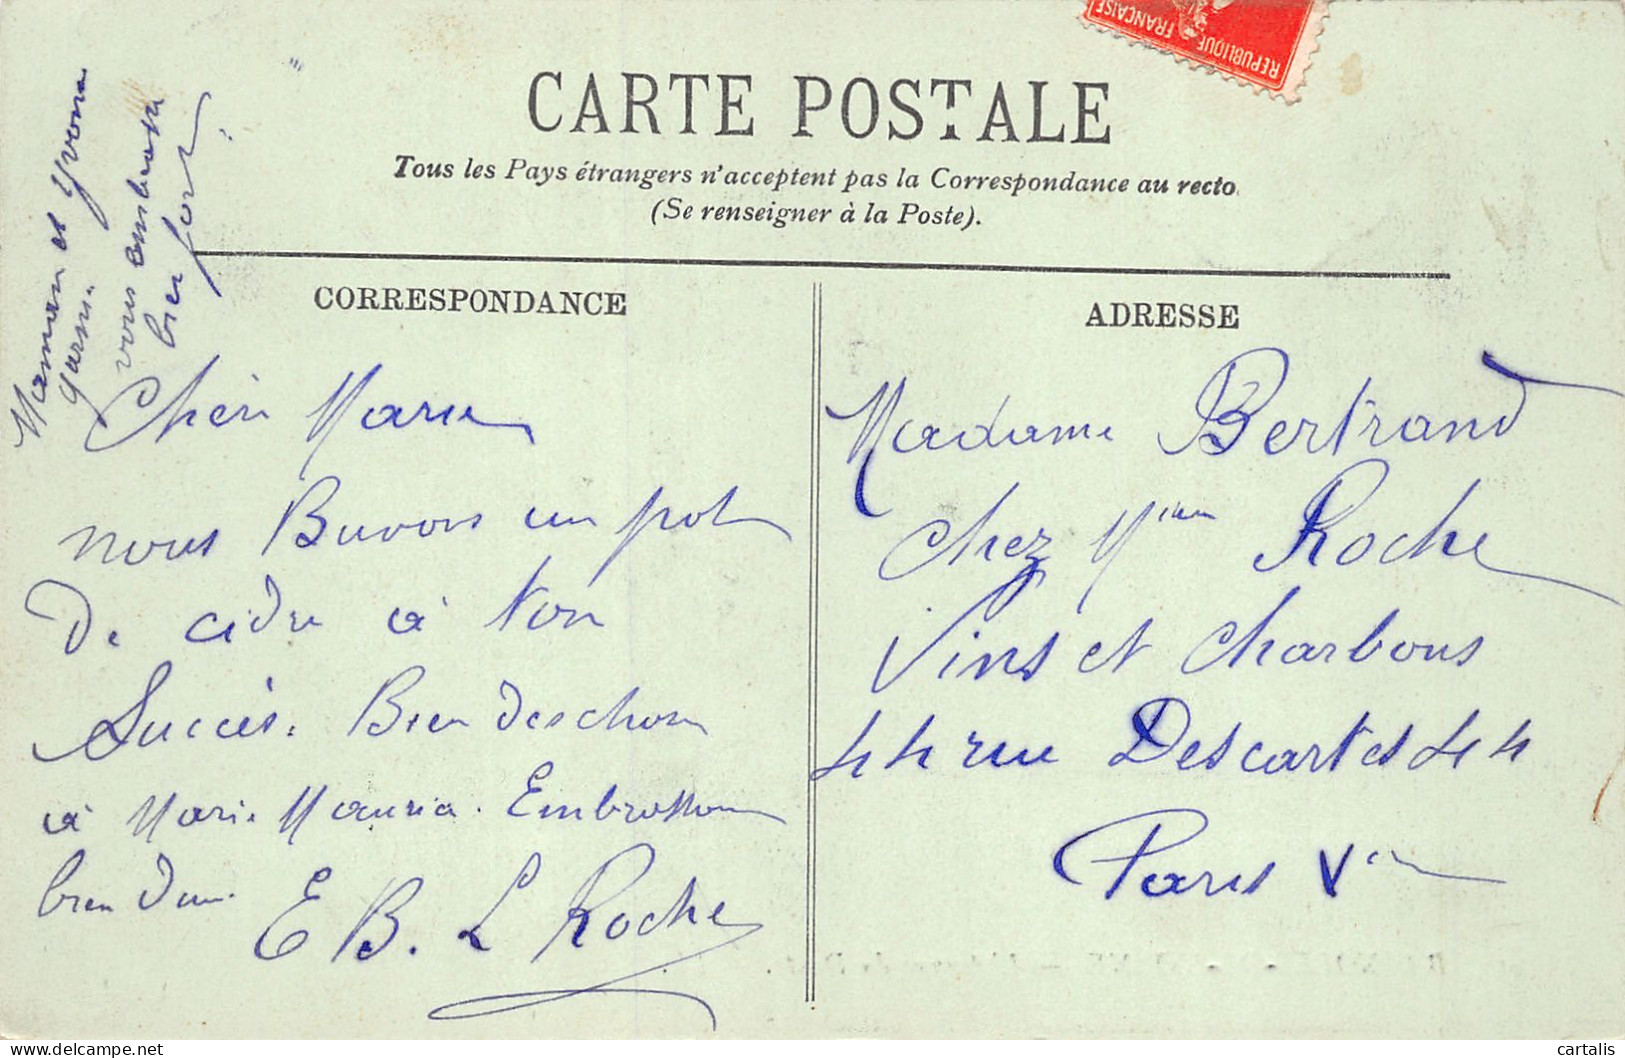 REPUBLIQUE FRANÇAISE
CARTE POSTALE
Tous les Pays étrangers n'acceptent pas la Correspondance au recto
(Se renseigner à la Poste).
CORRESPONDANCE
ADRESSE
Maman et Yvonne
vous embrasse
bien fort
Chéri Marie
nous Buvons un pot
De cidre à ton
Succès. Bien des chose
à Marie Embrasson
bien
E B. L Roche
Madame Bertrand
chez Mme Roche
Vins et Charbons
44 rue Descartes 44
Paris Ve
cartalis